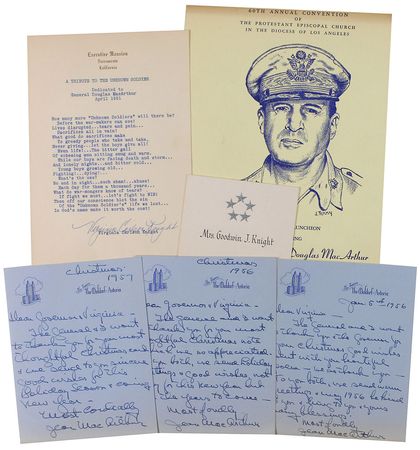 Executive Mansion
Sacramento
California
A TRIBUTE TO THE UNKNOWN SOLDIER
Dedicated to
General Douglas MacArthur
April 1951
How many more "Unknown Soldiers" will there be?
Before the war-makers can see?
Lives disrupted...tears and pain...
Sacrifices all in vain!
What good do sacrifices make
To greedy people who take and take.
Never giving...let the boys give all!
Even life!...The bitter gall
Of scheming men sitting snug and warm,
While our boys are facing death and storm...
And lonely nights...and bitter cold...
Young boys growing old...
Fighting!..Dying!
What's the use?
No end in sight...such sham!...abuse!
Each day for them a thousand years...
What do war-mongers know of tears!
If fight we must...let's fight to WIN!
Thus off our conscience blot the sin
Of the "Unknown Soldier's" life we lost...
In God's name make it worth the cost!
Virginia Carlson Knight
60TH ANNUAL CONVENTION
OF
THE PROTESTANT EPISCOPAL CHURCH
IN THE DIOCESE OF LOS ANGELES
LUNCHEON
Douglas MacArthur
Mrs. Goodwin J. Knight
Christmas
1957
The Waldorf-Astoria
Dear Governor & Virginia -
The General & I want
to thank you for your most
thoughtful Christmas card
and we send to you sincere
good wishes for this
Holiday Season & coming
New Year -
Most Cordially
Jean MacArthur
Christmas
1956
The Waldorf-Astoria
Dear Governor & Virginia -
The General & I want
thank you for your most
thoughtful Christmas note
which we so appreciated.
you both, we send Holiday
& good wishes not
this New Year but
the years to come -
Most fondly
Jean MacArthur
The Waldorf-Astoria
Jan 5th 1956
Dear Virginia -
The General and I want
to thank you & the Governor for
your Christmas good wishes
To you both, we send
may 1956 be
Most fondly
Jean MacArthur